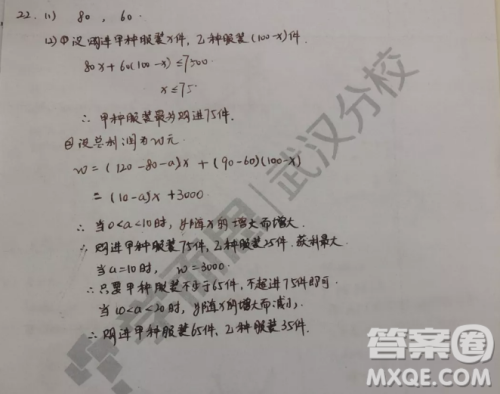 22. (1) 80 , 60.
(2) ① 设购进甲种服装x件, 乙种服装(100-x)件.
80x+60(100-x)≤7500
x≤75
∴ 甲种服装最多购进75件.
② 设总利润为w元
w=(120-80-a)x+(90-60)(100-x)
=(10-a)x+3000
∴ 当0<a<10时, y随x的增大而增大.
∴ 购进甲种服装75件, 乙种服装25件. 获利最大
当a=10时, w=3000.
∴ 只要甲种服装不少于65件, 不超过75件即可
当10<a<20时, y随x的增大而减小.
∴ 购进甲种服装65件, 乙种服装35件.
学而思|武汉分校
答案圈
MXQE.COM